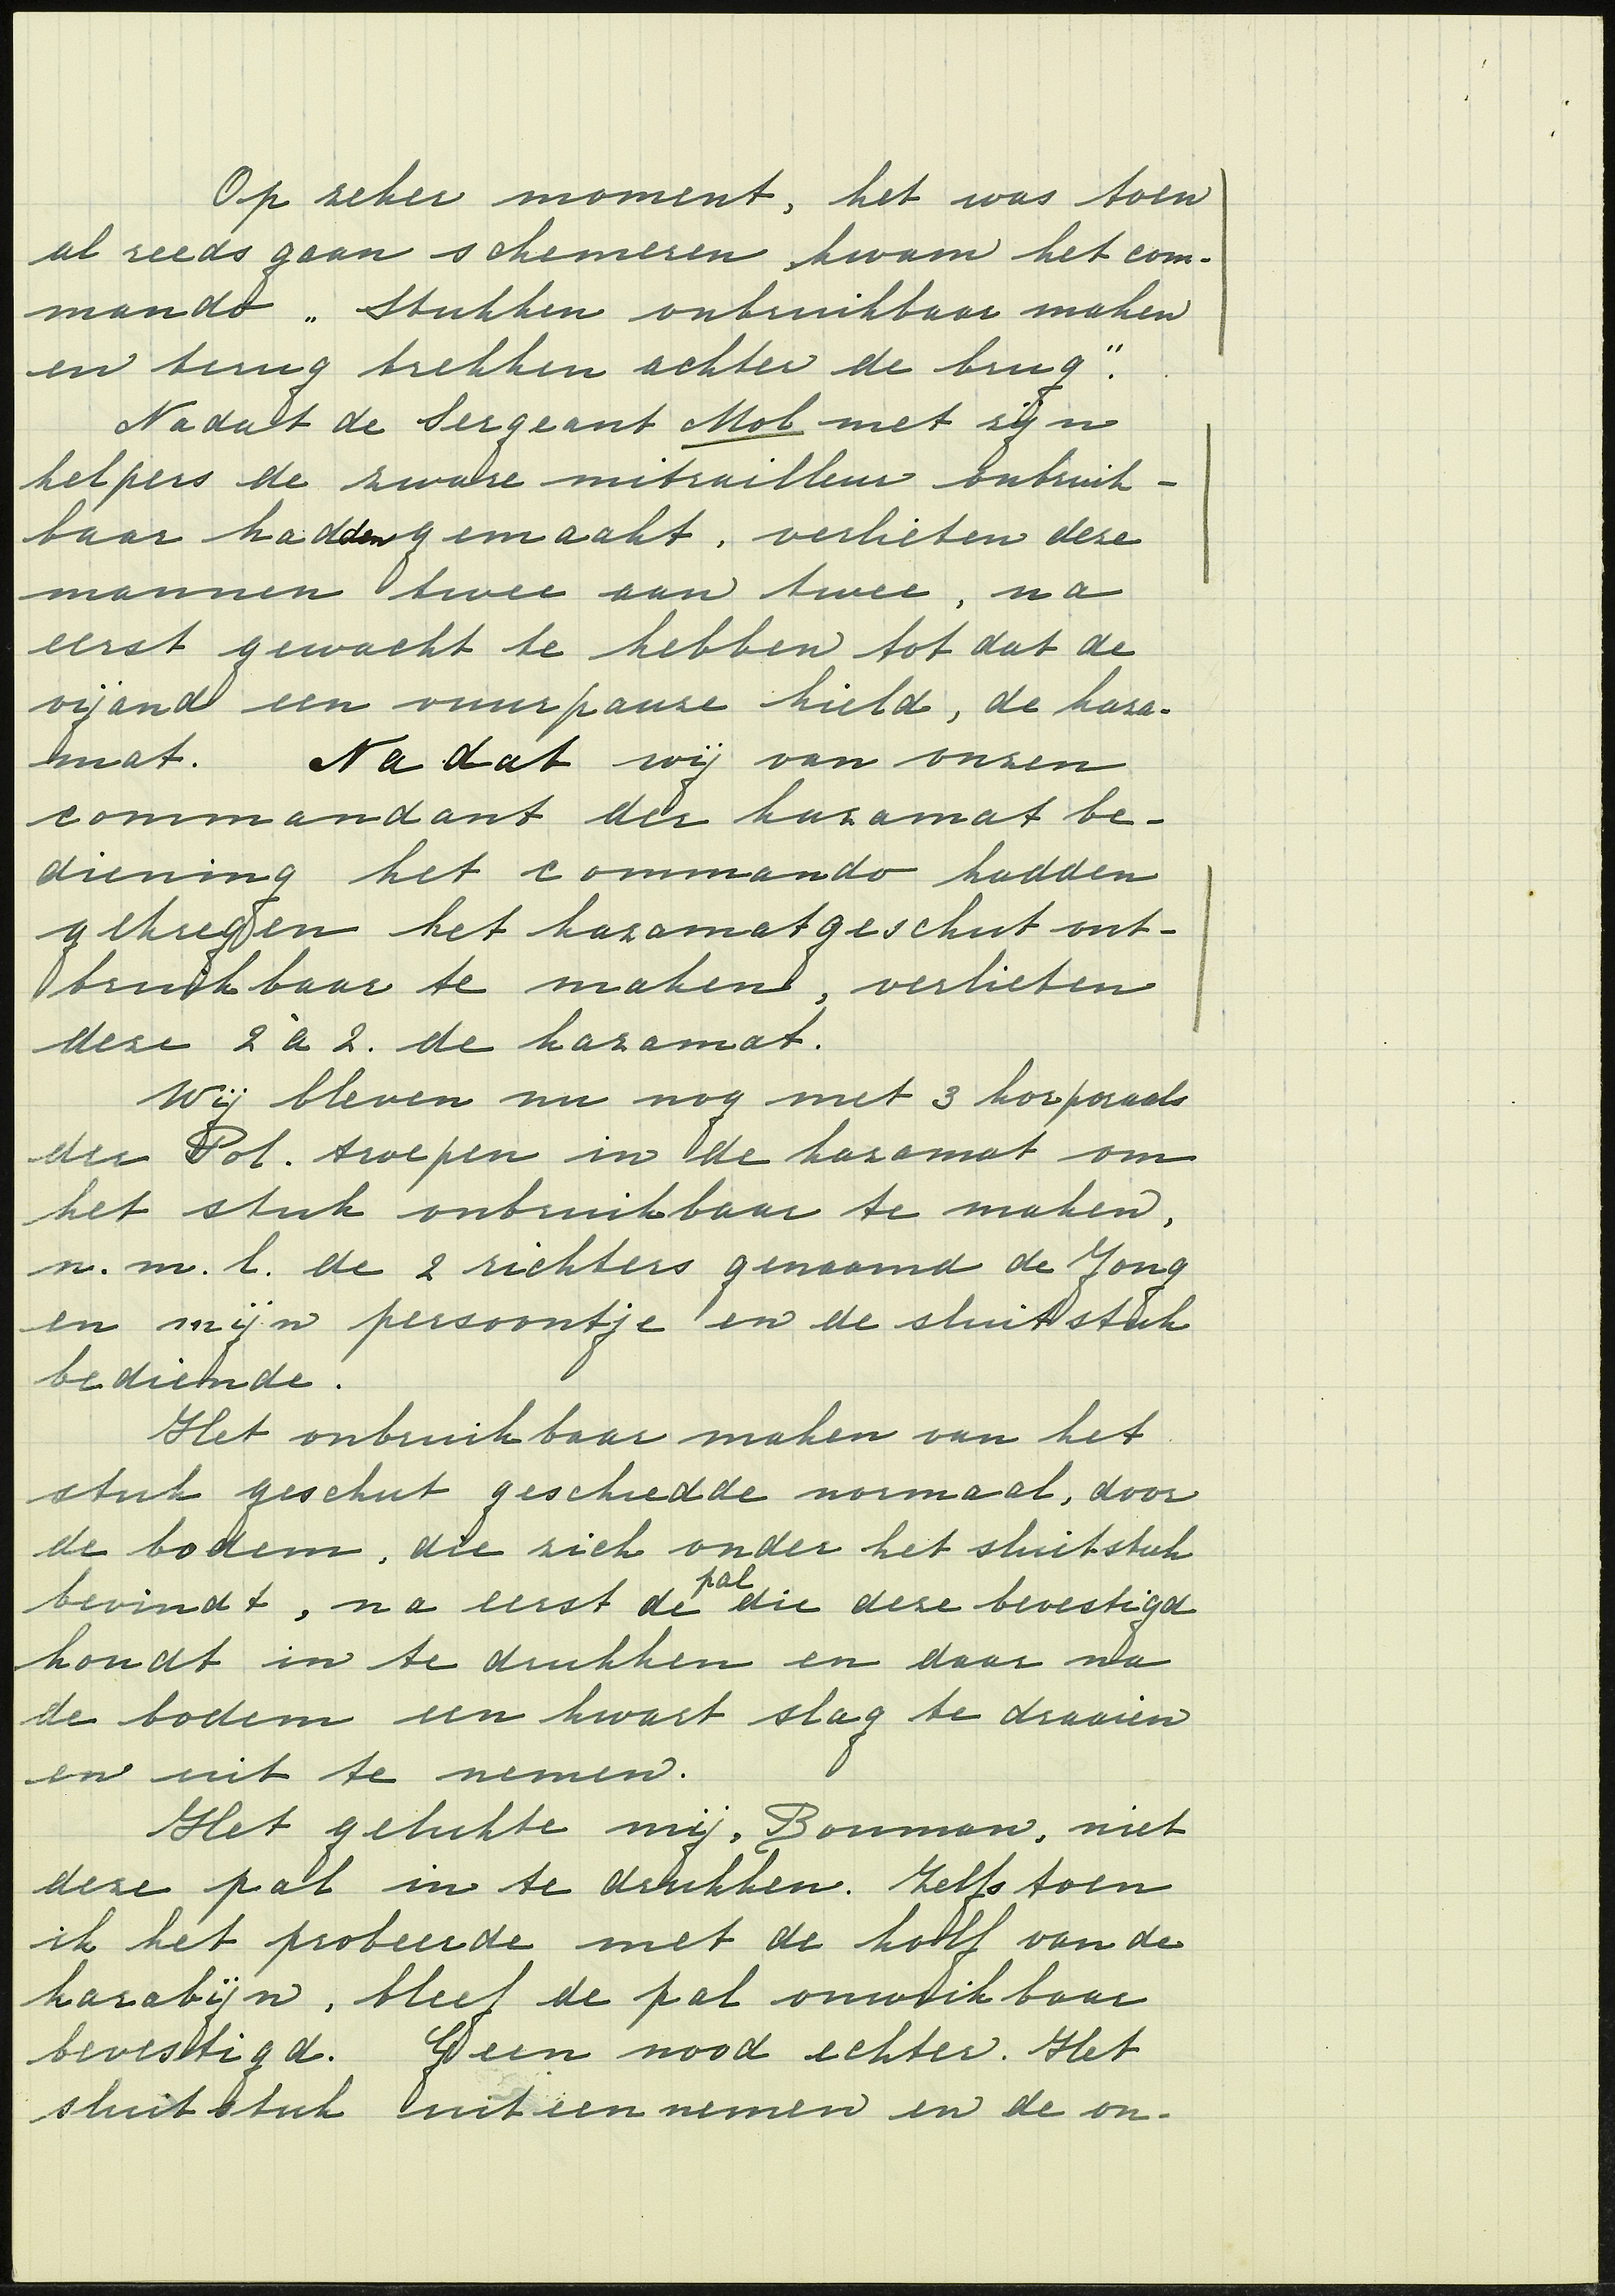 Op zeker moment, het was toen
al reeds gaan schemeren, kwam het com-
mando „ Stukken onbruikbaar maken
en terug trekken achter de brug".
Nadat de Sergeant Mol met zijn
helpers de zware mitrailleur onbruik-
baar hadden gemaakt, verlieten deze
mannen twee aan twee, na
eerst gewacht te hebben tot dat de
vijand een vuurpauze hield, de kaza-
mat. Nadat wij van onzen
commandant der kazamat be-
diening het commando hadden
gekregen het kazamatgeschut ont-
bruikbaar te maken, verlieten
deze 2 à 2. de kazamat.
Wij bleven nu nog met 3 korporaals
der Pol. troepen in de kazamat om
het stuk onbruikbaar te maken,
n.m.l. de 2 richters genaamd de Jong
en mijn persoontje en de sluitstuk
bediende.
Het onbruikbaar maken van het
stuk geschut geschiedde normaal, door
de bodem, die zich onder het sluitstuk
bevindt, na eerst de pal die deze bevestigd
houdt in te drukken en daar na
de bodem een kwart slag te draaien
en uit te nemen.
Het gelukte mij, Bouman, niet
deze pal in te drukken. Zelfs toen
ik het probeerde met de kolf van de
karabijn, bleef de pal onwrikbaar
bevestigd. Geen nood echter. Het
sluitstuk uiteennemen en de on-